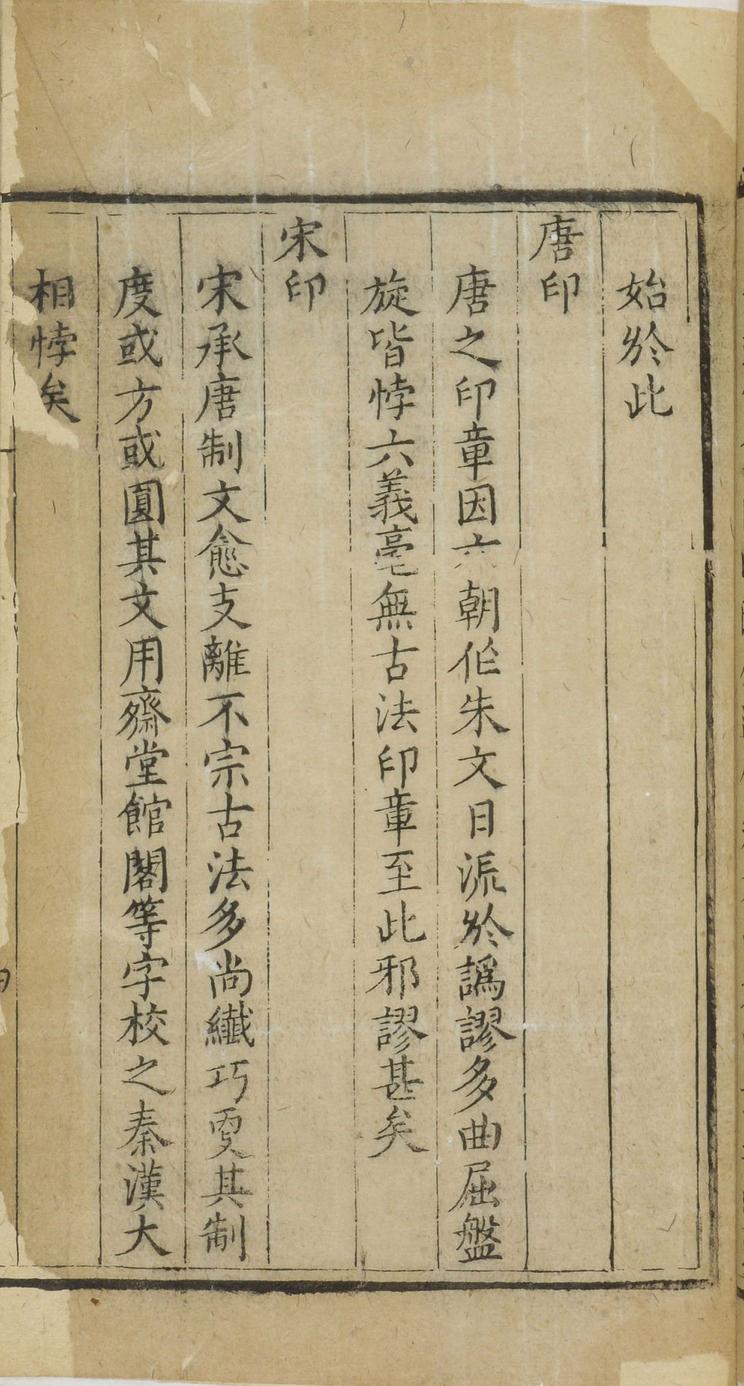 始於此
唐印
唐之印章因六朝作朱文日流於譌謬多曲屈盤
旋皆悖六義毫無古法印章至此邪謬甚矣
宋印
宋承唐制文愈支離不宗古法多尚纖巧更其制
度或方或圓其文用齋堂館閣等字校之秦漢大
相悖矣